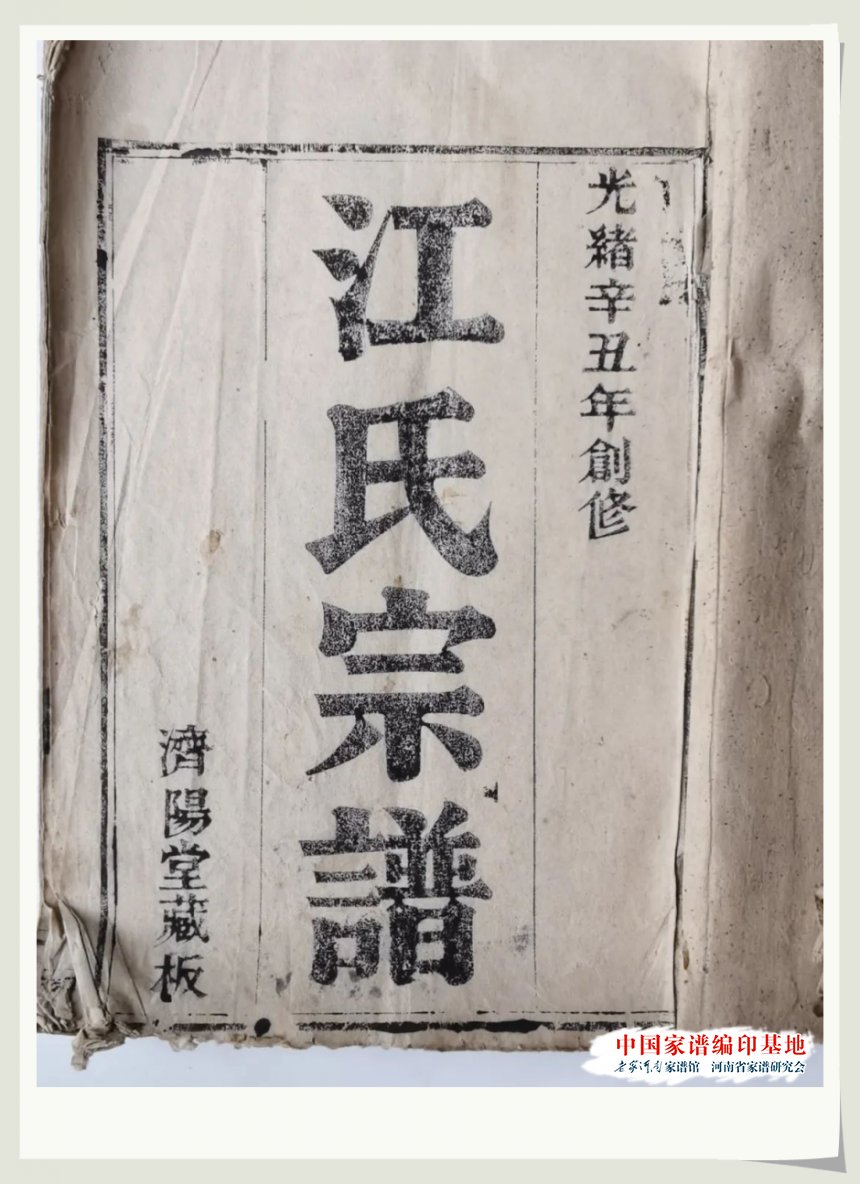 光緒辛丑年創修
江氏宗譜
濟陽堂藏板
中国家谱编印基地
家谱馆 河南省家谱研究会